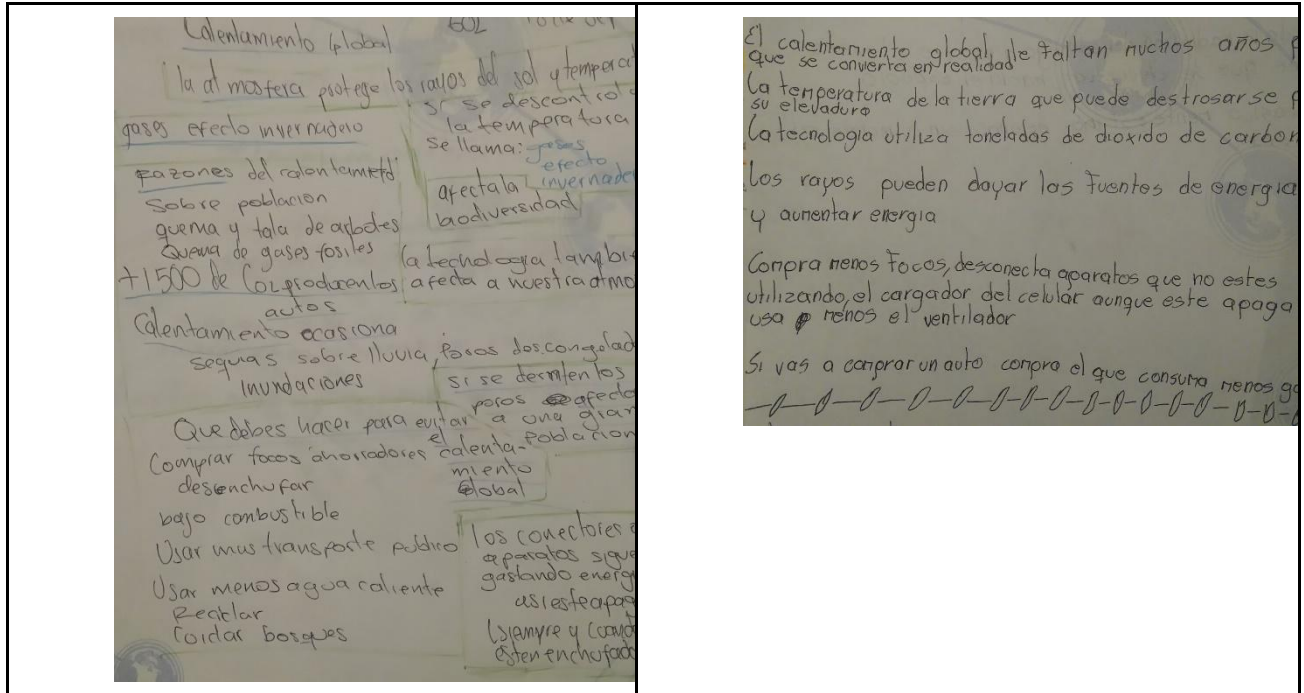 Calentamiento Global
602
la atmosfera protege los rayos del sol y tempera
si se descontrol
la temperatura
se llama: gases
efecto
invernade
gases efecto invernadero
razones del calentami
Sobre poblacion
quema y tala de arboles
Quema de gases fosiles
+1500 de Co2 producen los
autos
afecta la
biodiversidad
la tecnologia tambie
afecta a nuestra atmo
Calentamiento ocasiona
sequias sobre lluvia, poros descongelad
inundaciones
si se derriten los
poros afecta
a una gran
poblacion
Que debes hacer para evitar
el calenta-
miento
Global
Comprar focos ahorradores
desenchufar
bajo combustible
Usar mus transporte publico
Usar menos agua caliente
Reciclar
Coidar bosques
los conectores
aparatos sigue
gastando energi
asi este apag
(siempre y cuand
esten enchufado
El calentamiento global, le faltan muchos años
que se convierta en realidad
La temperatura de la tierra que puede destrosarse
su elevadura
La tecnologia utiliza toneladas de dioxido de carbon
Los rayos pueden dayar las fuentes de energia
y aumentar energia
Compra menos focos, desconecta aparatos que no estes
utilizando, el cargador del celular aunque este apaga
usa menos el ventilador
Si vas a comprar un auto compra el que consuma menos ga